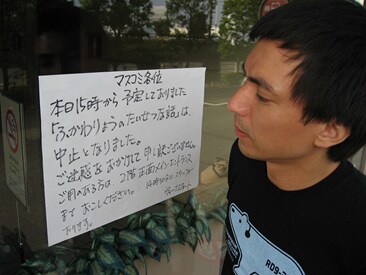 マスコミ各位
本日15時から予定しておりました
「ふかわりょうのたいせつな話」は、
中止となりました。
ご迷惑をおかけして申し訳ございません。
ご用のある方は、2階正面メインエントランス
まで おこしください。